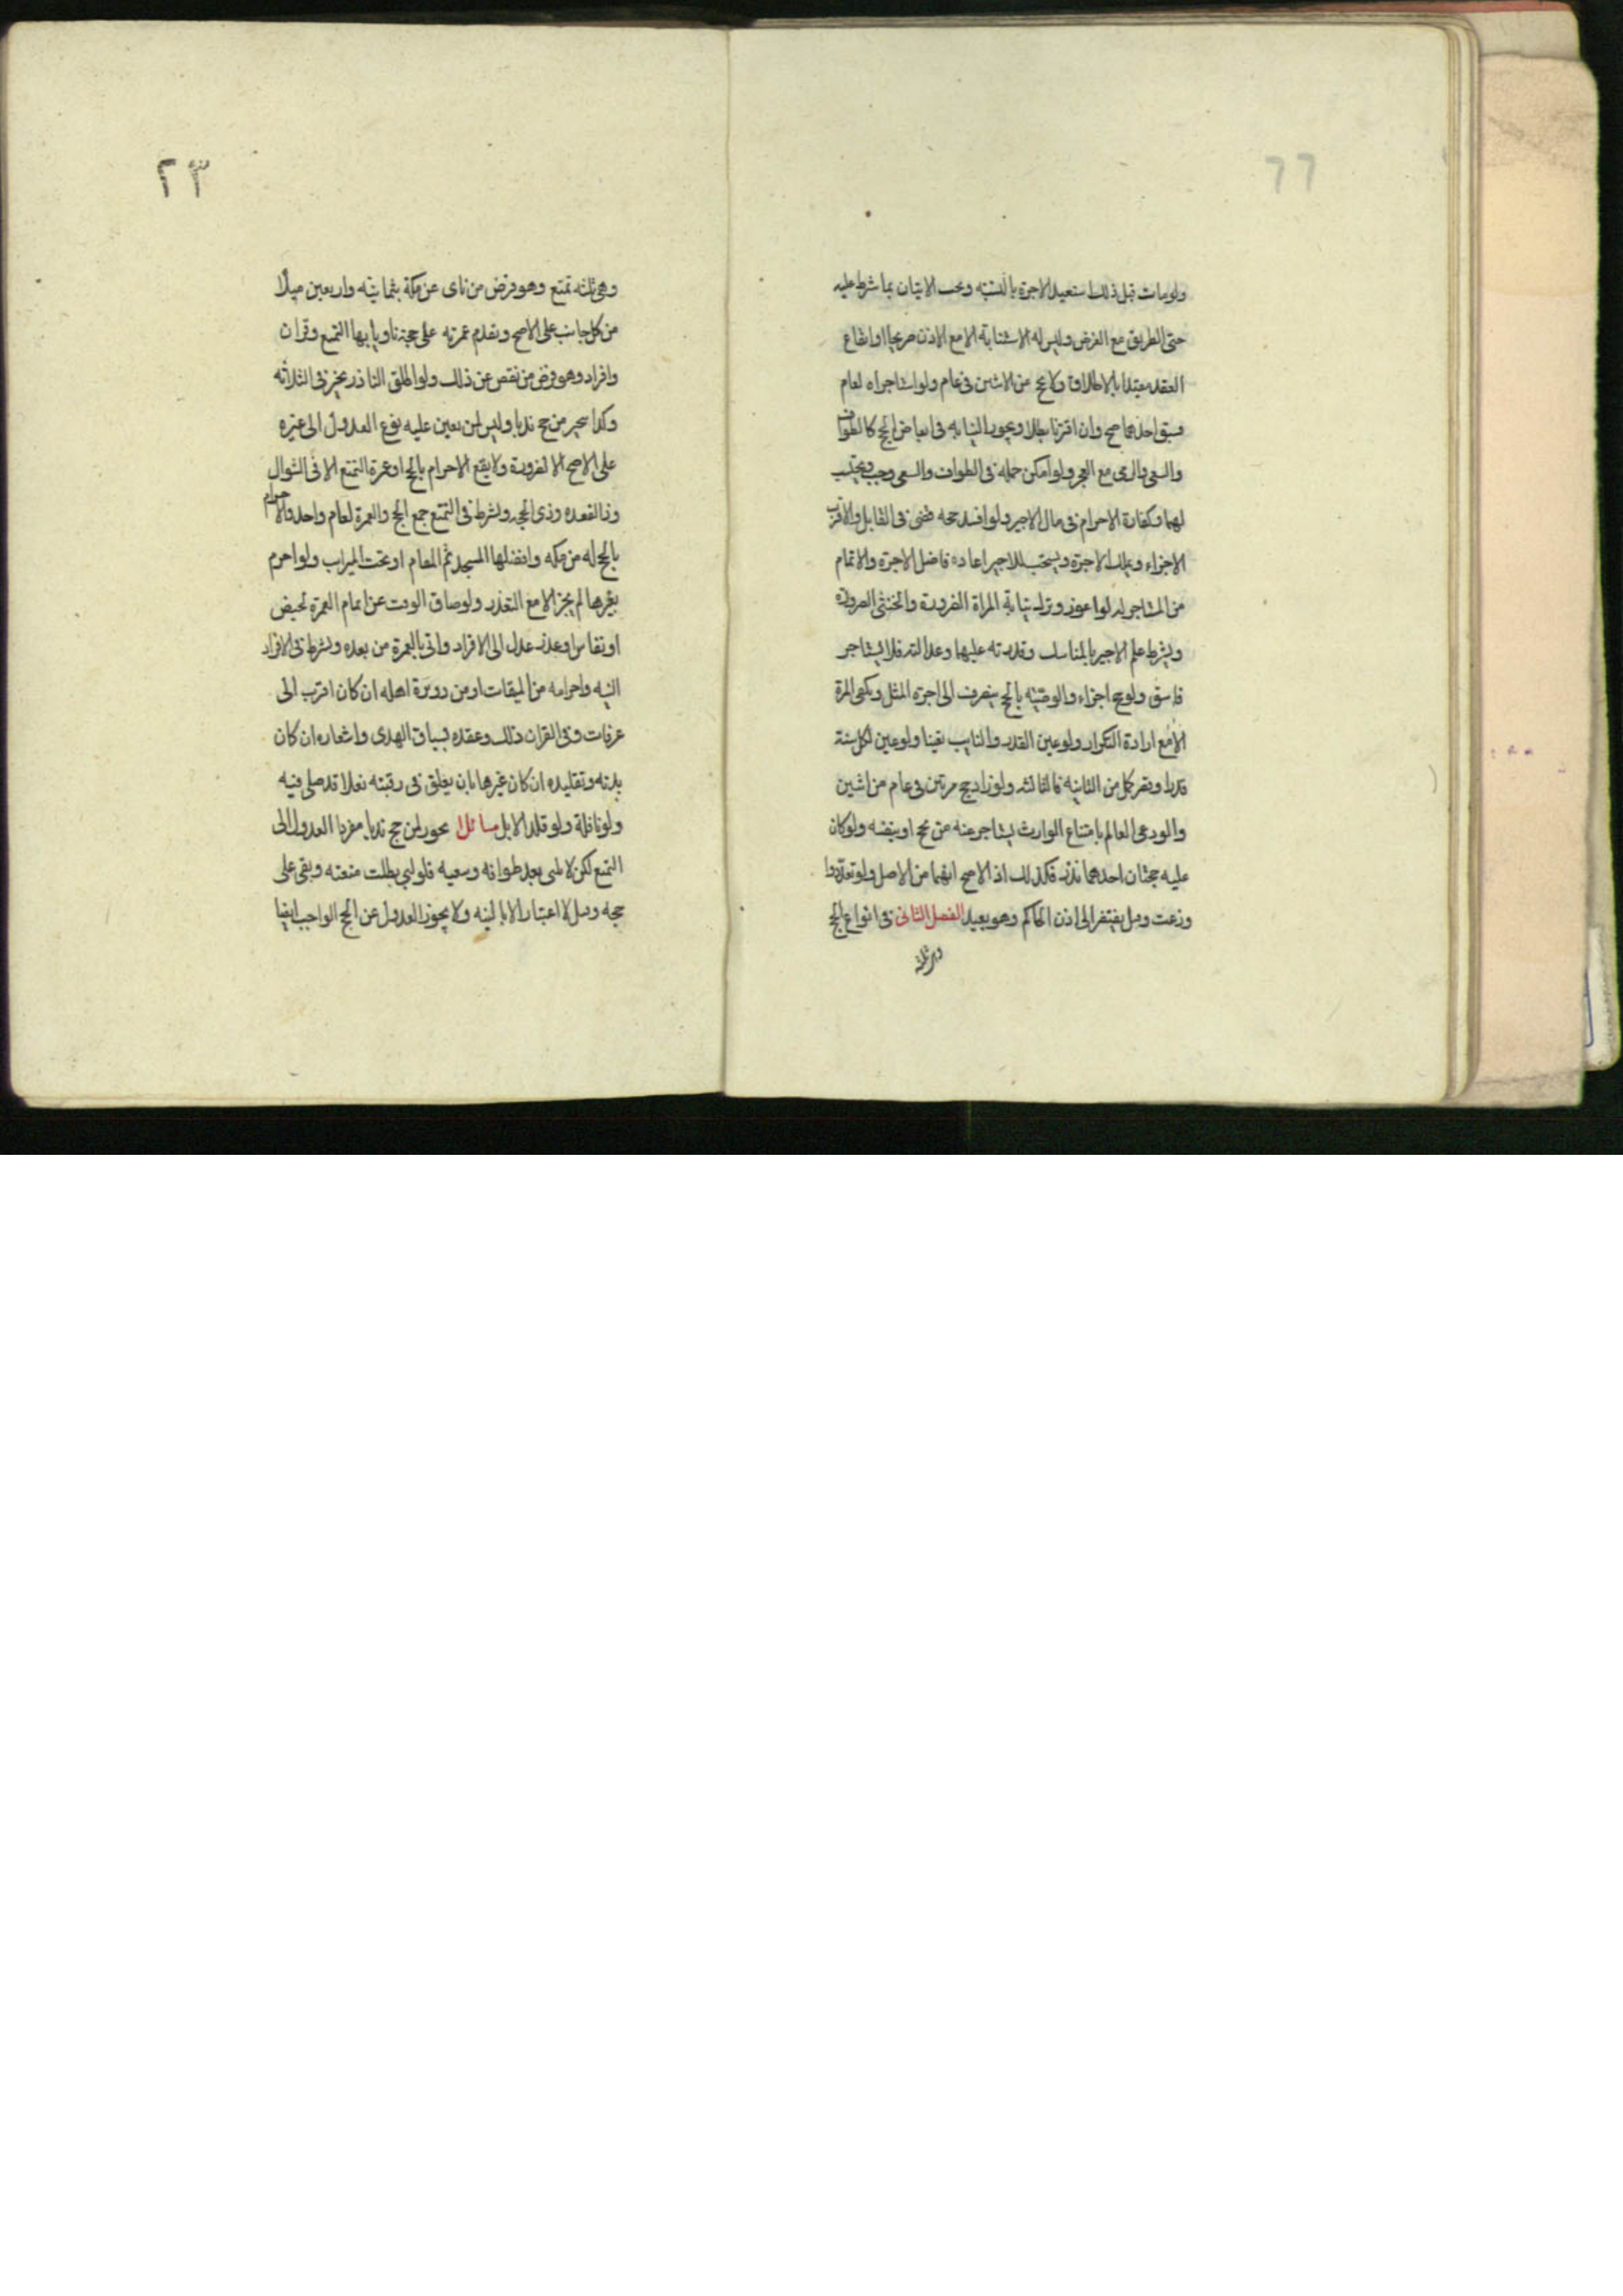 ولومات قبل ذلك استعيد الاجرة بالنسبة ويجب الاتيان بما شرط عليه
حتى الطريق مع الغرض وليس له الاستنابة الا مع الاذن صريحا او ايقاع
العقد مقيدا بالاطلاق ولا يحج عن الاثنين في عام ولو استاجراه لعام
فسبق احدهما صح وان اقترنا بطلا ويجوز النيابه في ابعاض الحج كالطواف
والسعي والرمي مع العجز ولو امكن حمله في الطواف والسعي وجب ويحتسب
لهما وكفارة الاحرام في مال الاجير ولو افسد حجه قضى في القابل والاقرب
الاجزاء ويملك الاجرة ويستحب للاجير اعادة فاضل الاجرة والاتمام
من المستاجر له لو اعوز وترك نيابة المراة الصرورة والخنثى الصرورة
ويشرط علم الاجير بالمناسك وقدرته عليها وعدالته فلا يستاجر
فاسق ولو حج اجزاء والوصية بالحج ينصرف الى اجرة المثل ويكفى المرة
الا مع ارادة التكرار ولو عين القدر والنايب تعينا ولو عين لكل سنة
قدرا وقصر كمل من الثانية فالثالثه ولو زاد حج مرتين في عام من اثنين
والودعى العالم بامتناع الوارث يستاجر عنه من يحج او بنفسه ولو كان
عليه حجتان احدهما نذر فكذلك اذ الاصح انهما من الاصل ولو تعددوا
وزعت وقيل يفتقر الى اذن الحاكم وهو بعيد الفصل الثانى في انواع الحج
وهى ثلثه
٢٣
وهى ثلثه تمتع وهو فرض من ناى عن مكة بثمانية واربعين ميلا
من كل جانب على الاصح ويقدم عمرته على حجه ناويا بها التمتع وقران
وافراد وهو فرض من نقص عن ذلك ولو اطلق الناذر تخير في الثلاثه
وكذا يتخير من حج ندبا وليس لمن تعين عليه نوع العدول الى غيره
على الاصح الا لضرورة ولا يقع الاحرام بالحج او عمرة التمتع الا في الشوال
وذا القعده وذى الحجه ويشرط في التمتع جمع الحج والعمرة لعام واحد والاحرام
بالحج له من مكه وافضلها المسجد ثم المقام او تحت الميزاب ولو احرم
بغيرها لم يجز الا مع التعذر ولو ضاق الوقت عن اتمام العمرة لحيض
او نفاس او عذر عدل الى الافراد واتى بالعمرة من بعده ويشرط في الافراد
النيه واحرامه من الميقات او من دويرة اهله ان كان اقرب الى
عرفات وفى القران ذلك وعقده بسياق الهدى واشعاره ان كان
بدنه وتقليده ان كان غيرها بان يعلق في رقبته نعلا قد صلى فيه
ولو نافلة ولو قلد الابل مسائل ا يجوز لمن حج ندبا مفردا العدول الى
التمتع لكن لا يلبى بعد طوافه وسعيه فلو لبى بطلت متعته وبقى على
حجه وقيل لا اعتبار الا بالنيه ولا يجوز العدول عن الحج الواجب ايضا